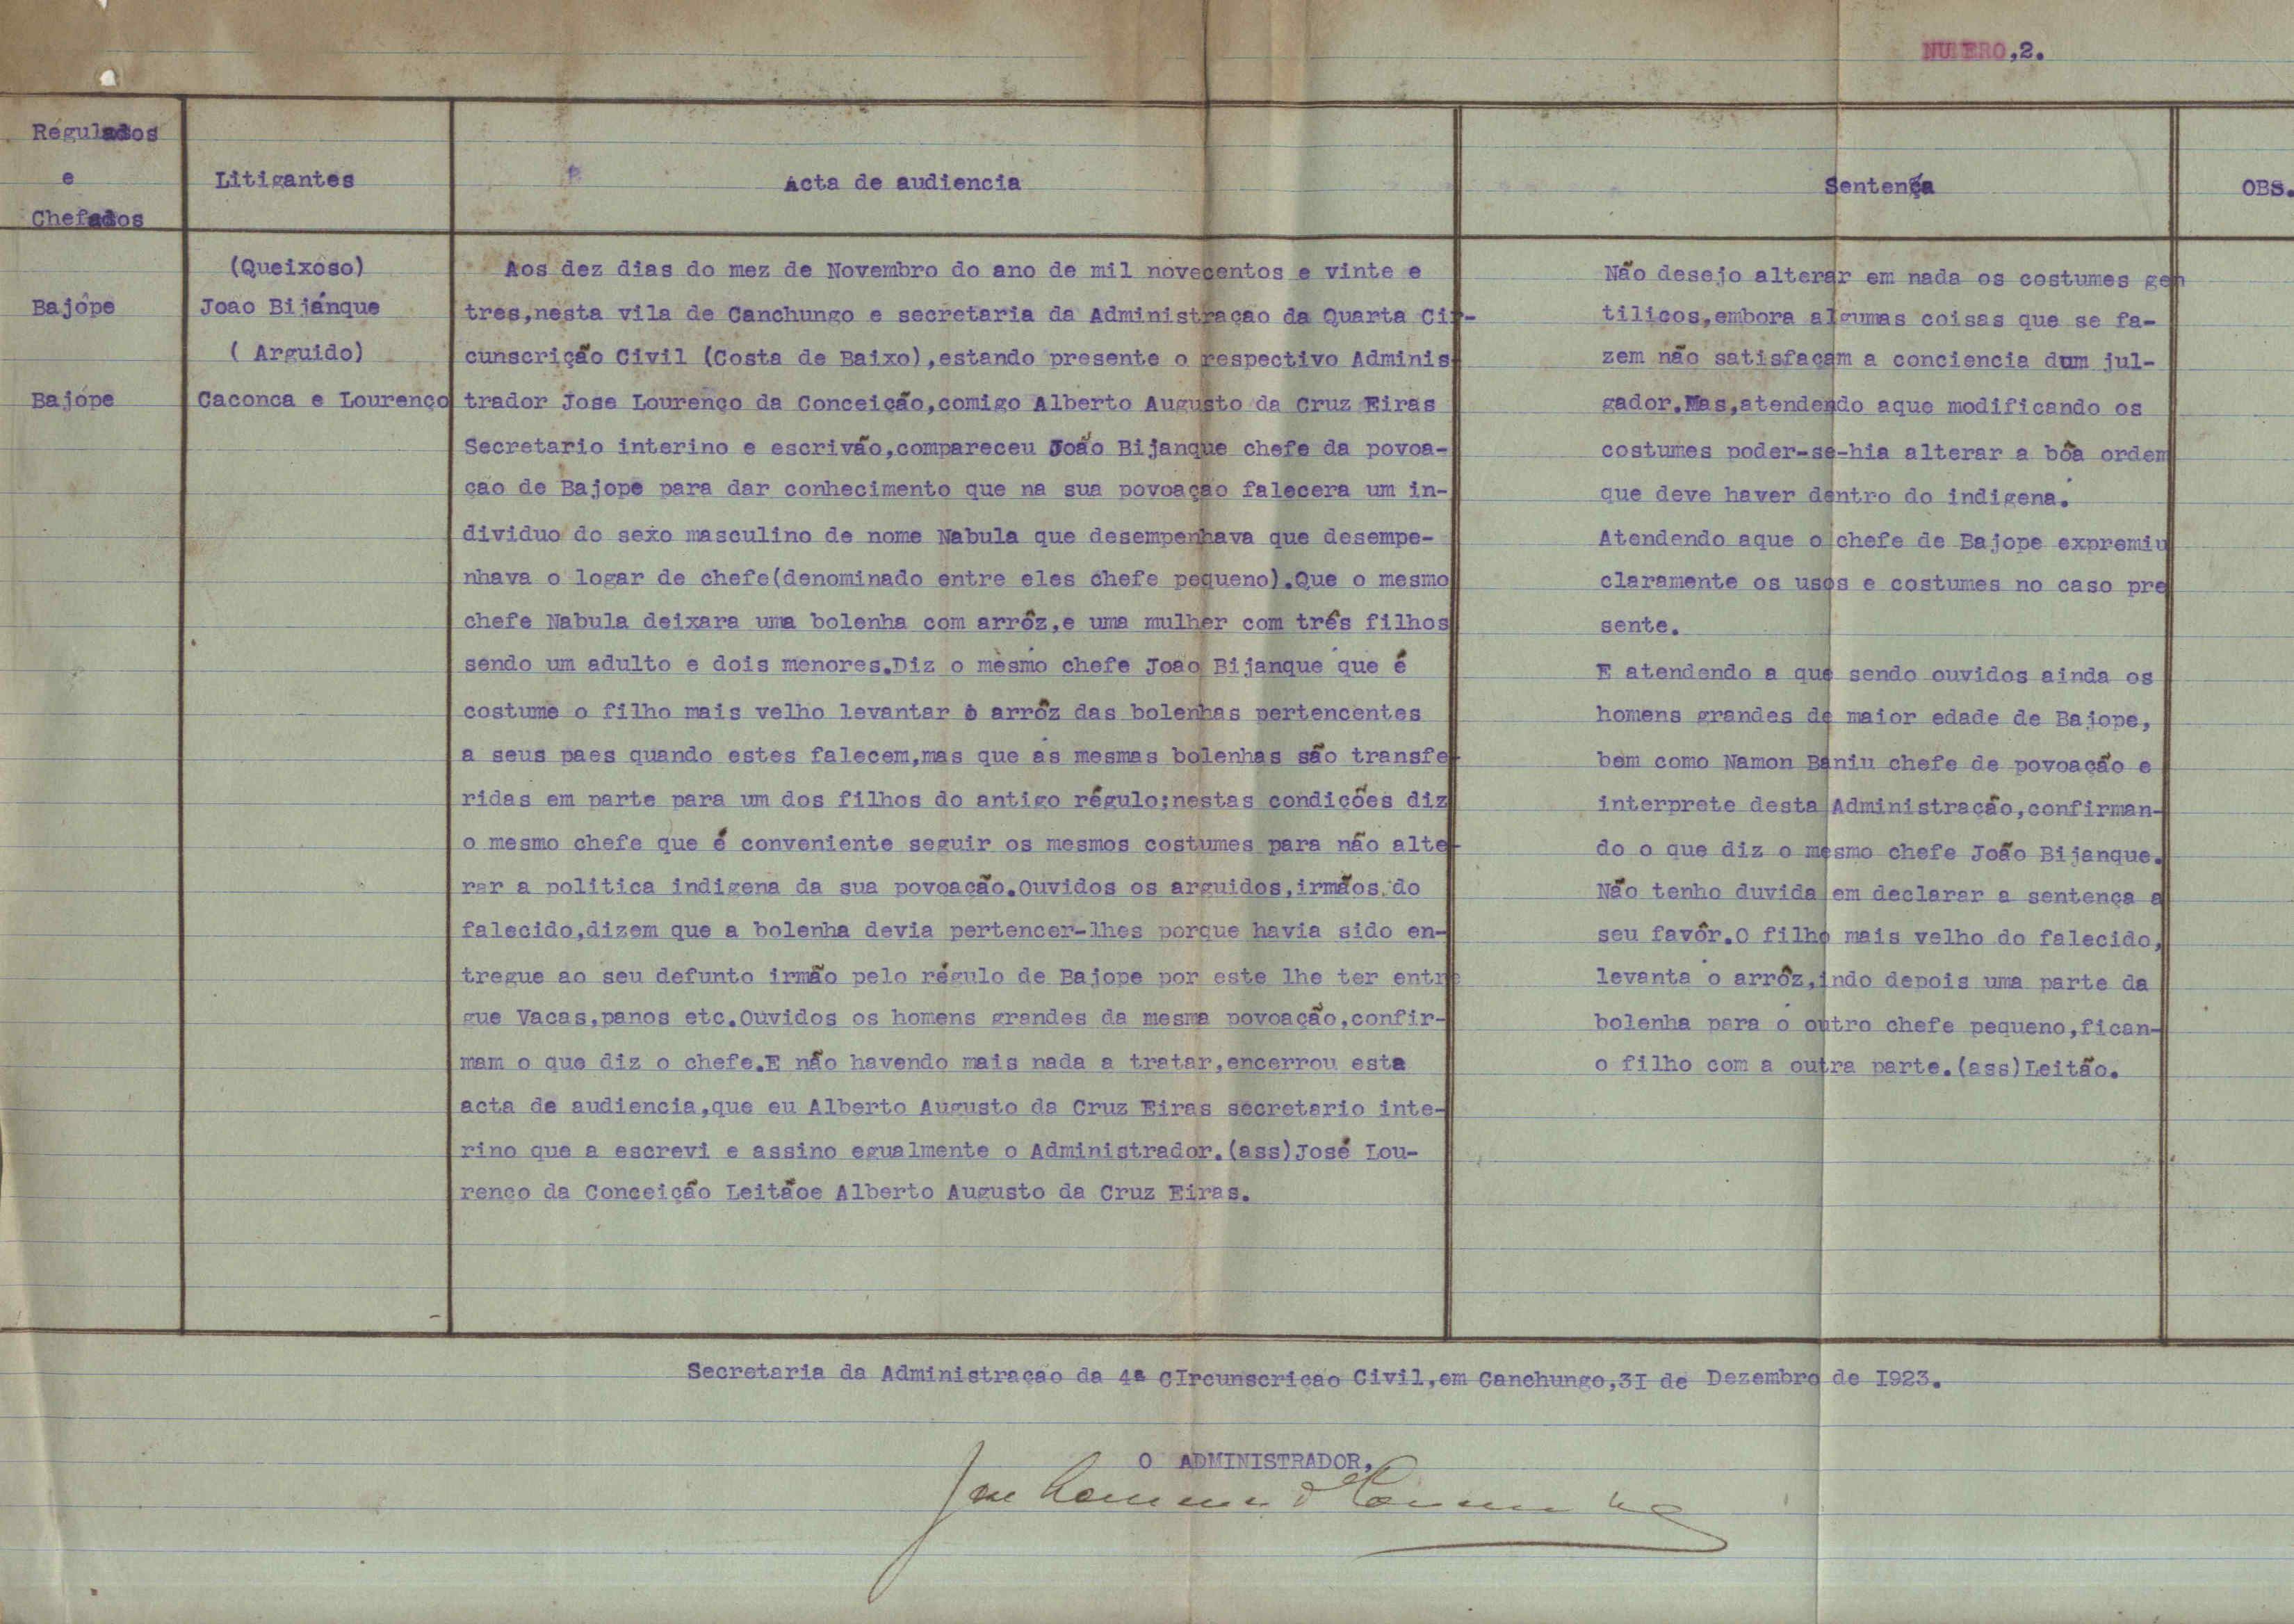 NUMERO,2.
Regulados
e
Chefados
Litigantes
Acta de audiencia
Sentença
OBS.
(Queixoso)
Bajôpe
João Bijánque
( Arguido)
Bajópe
Caconca e Lourenço
Aos dez dias do mez de Novembro do ano de mil novecentos e vinte e
tres,nesta vila de Canchungo e secretaria da Administração da Quarta Cir-
cunscrição Civil (Costa de Baixo),estando presente o respectivo Adminis-
trador Jose Lourenço da Conceição,comigo Alberto Augusto da Cruz Eiras
Secretario interino e escrivão,compareceu João Bijanque chefe da povoa-
ção de Bajope para dar conhecimento que na sua povoação falecera um in-
dividuo do sexo masculino de nome Nabula que desempenhava que desempe-
nhava o logar de chefe(denominado entre eles chefe pequeno).Que o mesmo
chefe Nabula deixara uma bolenha com arrôz,e uma mulher com três filhos
sendo um adulto e dois menores.Diz o mesmo chefe Joao Bijanque que é
costume o filho mais velho levantar o arrôz das bolenhas pertencentes
a seus paes quando estes falecem,mas que as mesmas bolenhas são transfe-
ridas em parte para um dos filhos do antigo régulo;nestas condições diz
o mesmo chefe que é conveniente seguir os mesmos costumes para não alte-
rar a politica indigena da sua povoação.Ouvidos os arguidos,irmãos do
falecido,dizem que a bolenha devia pertencer-lhes porque havia sido en-
tregue ao seu defunto irmão pelo régulo de Bajope por este lhe ter entre
gue Vacas,panos etc.Ouvidos os homens grandes da mesma povoação,confir-
mam o que diz o chefe.E não havendo mais nada a tratar,encerrou esta
acta de audiencia,que eu Alberto Augusto da Cruz Eiras secretario inte-
rino que a escrevi e assino egualmente o Administrador.(ass)José Lou-
renço da Conceição Leitãoe Alberto Augusto da Cruz Eiras.
Não desejo alterar em nada os costumes gen
tilicos,embora algumas coisas que se fa-
zem não satisfaçam a conciencia dum jul-
gador.Mas,atendendo aque modificando os
costumes poder-se-hia alterar a bôa ordem
que deve haver dentro do indigena.
Atendendo aque o chefe de Bajope expremiu
claramente os usos e costumes no caso pre
sente.
E atendendo a que sendo ouvidos ainda os
homens grandes de maior edade de Bajope,
bem como Namon Baniu chefe de povoação e
interprete desta Administração,confirman-
do o que diz o mesmo chefe João Bijanque.
Não tenho duvida em declarar a sentença a
seu favôr.O filho mais velho do falecido,
levanta o arrôz,indo depois uma parte da
bolenha para o outro chefe pequeno,fican-
o filho com a outra parte.(ass)Leitão.
Secretaria da Administração da 4ª CIrcunscriçao Civil,em Canchungo,3I de Dezembro de I923.
O ADMINISTRADOR,